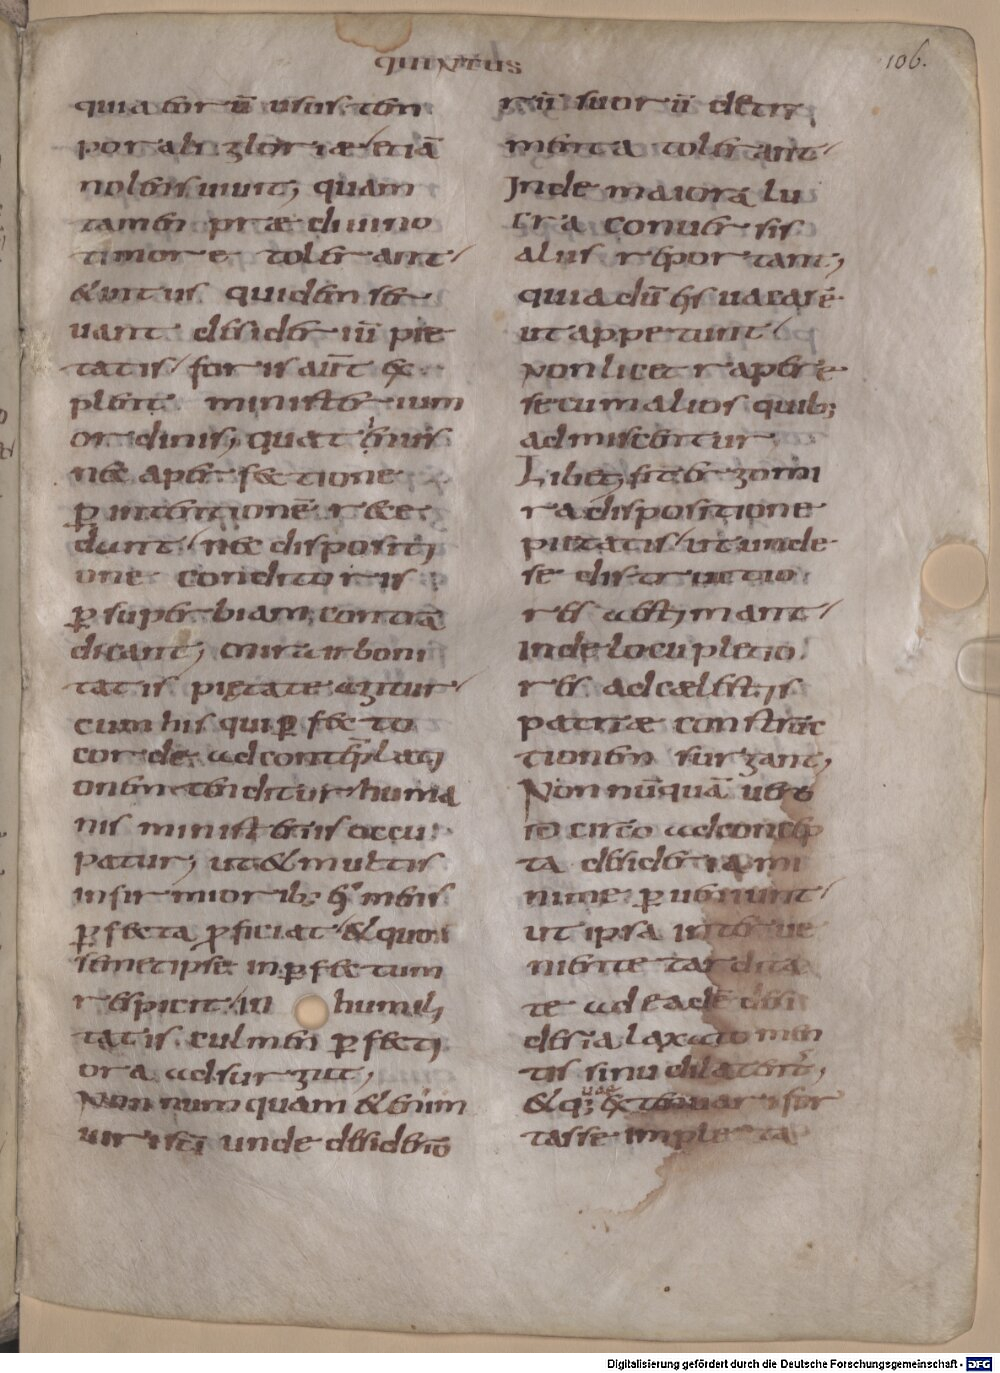 quintus
106.
quia eorū usus tem
poralis gloriae etiā
nolens inuit; quam
tamen prae diuino
timore tolerant
& intus quidem ser
uant desideriū pie
tatis foris aūt ex
plent ministerium
ordinis; quatenus
nec a perfectione
ꝑ intentionē recte
dunt nec dispositi
one conditoris
ꝑ superbiam contra
dicant; mira boni
tatis pietate agitur
cum his qui ꝑfecto
corde ad contēplati
onem tenditur huma
nis ministeriis occu
patur; ut & multis
infirmioribꝫ eiꝰ mens
ꝑfecta ꝓficiat & quo
semetipse inꝑfectum
respicit in humili
tatis culmen ꝑfecti
ora adsurgat;
Non num quam & enim
uiri sc̄i unde desiderio
riū suoriū detri
menta tolerant
Inde maiora lu
cra conuersis
aliis reportant;
quia dū eis uacare
ut appetunt
Non licet rapere
secum alios quibꝫ
admiscentur
Libet
ra dispositione
pietatis ut unde
se distructio
res aestimant
Inde locupletio
res ad caelestis
patriae construc
tionem surgant;
Non nūquā uero
idcirco ad concep
ta desideria mi
nime ꝑueniunt
ut ipsa interue
niente tardita
te ad eadē desi
deria laxato men
tis sinu dilatent̄;
& qꝫ extenuari for
tasse impleta
Digitalisierung gefördert durch die Deutsche Forschungsgemeinschaft - DFG